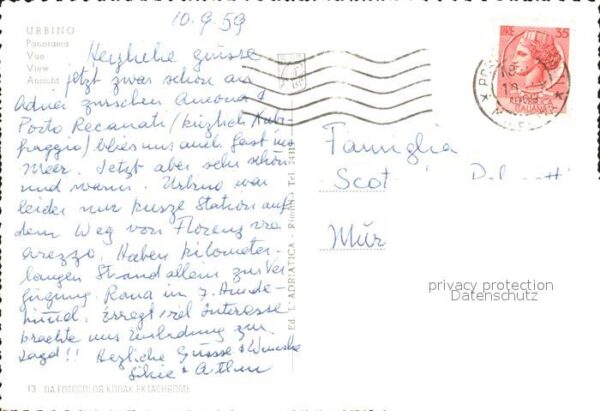 10.9.59
URBINO
Panorama
Vue
View
Ansicht
Herzliche Grüsse
jetzt zwar schon an
Adria zwischen Ancona &
Porto Recanati
ins auch fast ins
Meer. Jetzt aber sehr schön
und warm. Urbino war
leider nur kurze Station auf
dem Weg von Florenz via
Arezzo. Haben kilometer-
langen Strand allein zur Ver-
fügung. Rana in 7. Hunde-
Erregt viel Interesse
brachte uns Einladung zur
Jagd!! Herzliche Grüsse & Wünsche
Ed. L'ADRIATICA - Rimini - Tel. 
LIRE 35
REPVBBLICA
ITALIANA
Famiglia
Scot
Mür
privacy protection
Datenschutz
13 DA FOTOCOLOR KODAK EKTACHROME